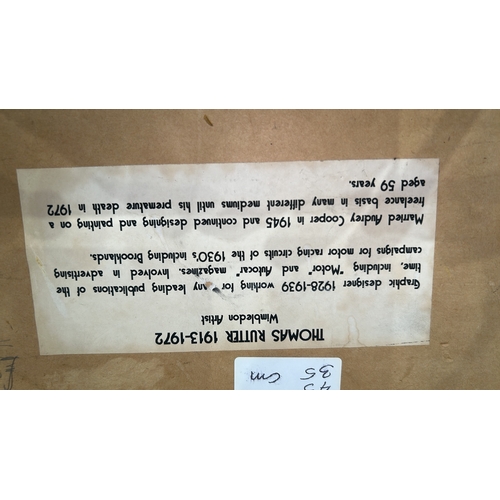 THOMAS RUTTER 1913-1972
Wimbledon Artist
Graphic designer 1926-1939 working for any leading publications of the
time, including "Motor" and "Autocar" magazines. Involved in advertising
campaigns for motor racing circuits of the 1930's including Brooklands.
Married Audrey Cooper in 1945 and continued designing and painting on a
freelance basis in many different mediums until his premature death in 1972
aged 59 years.
35 cm